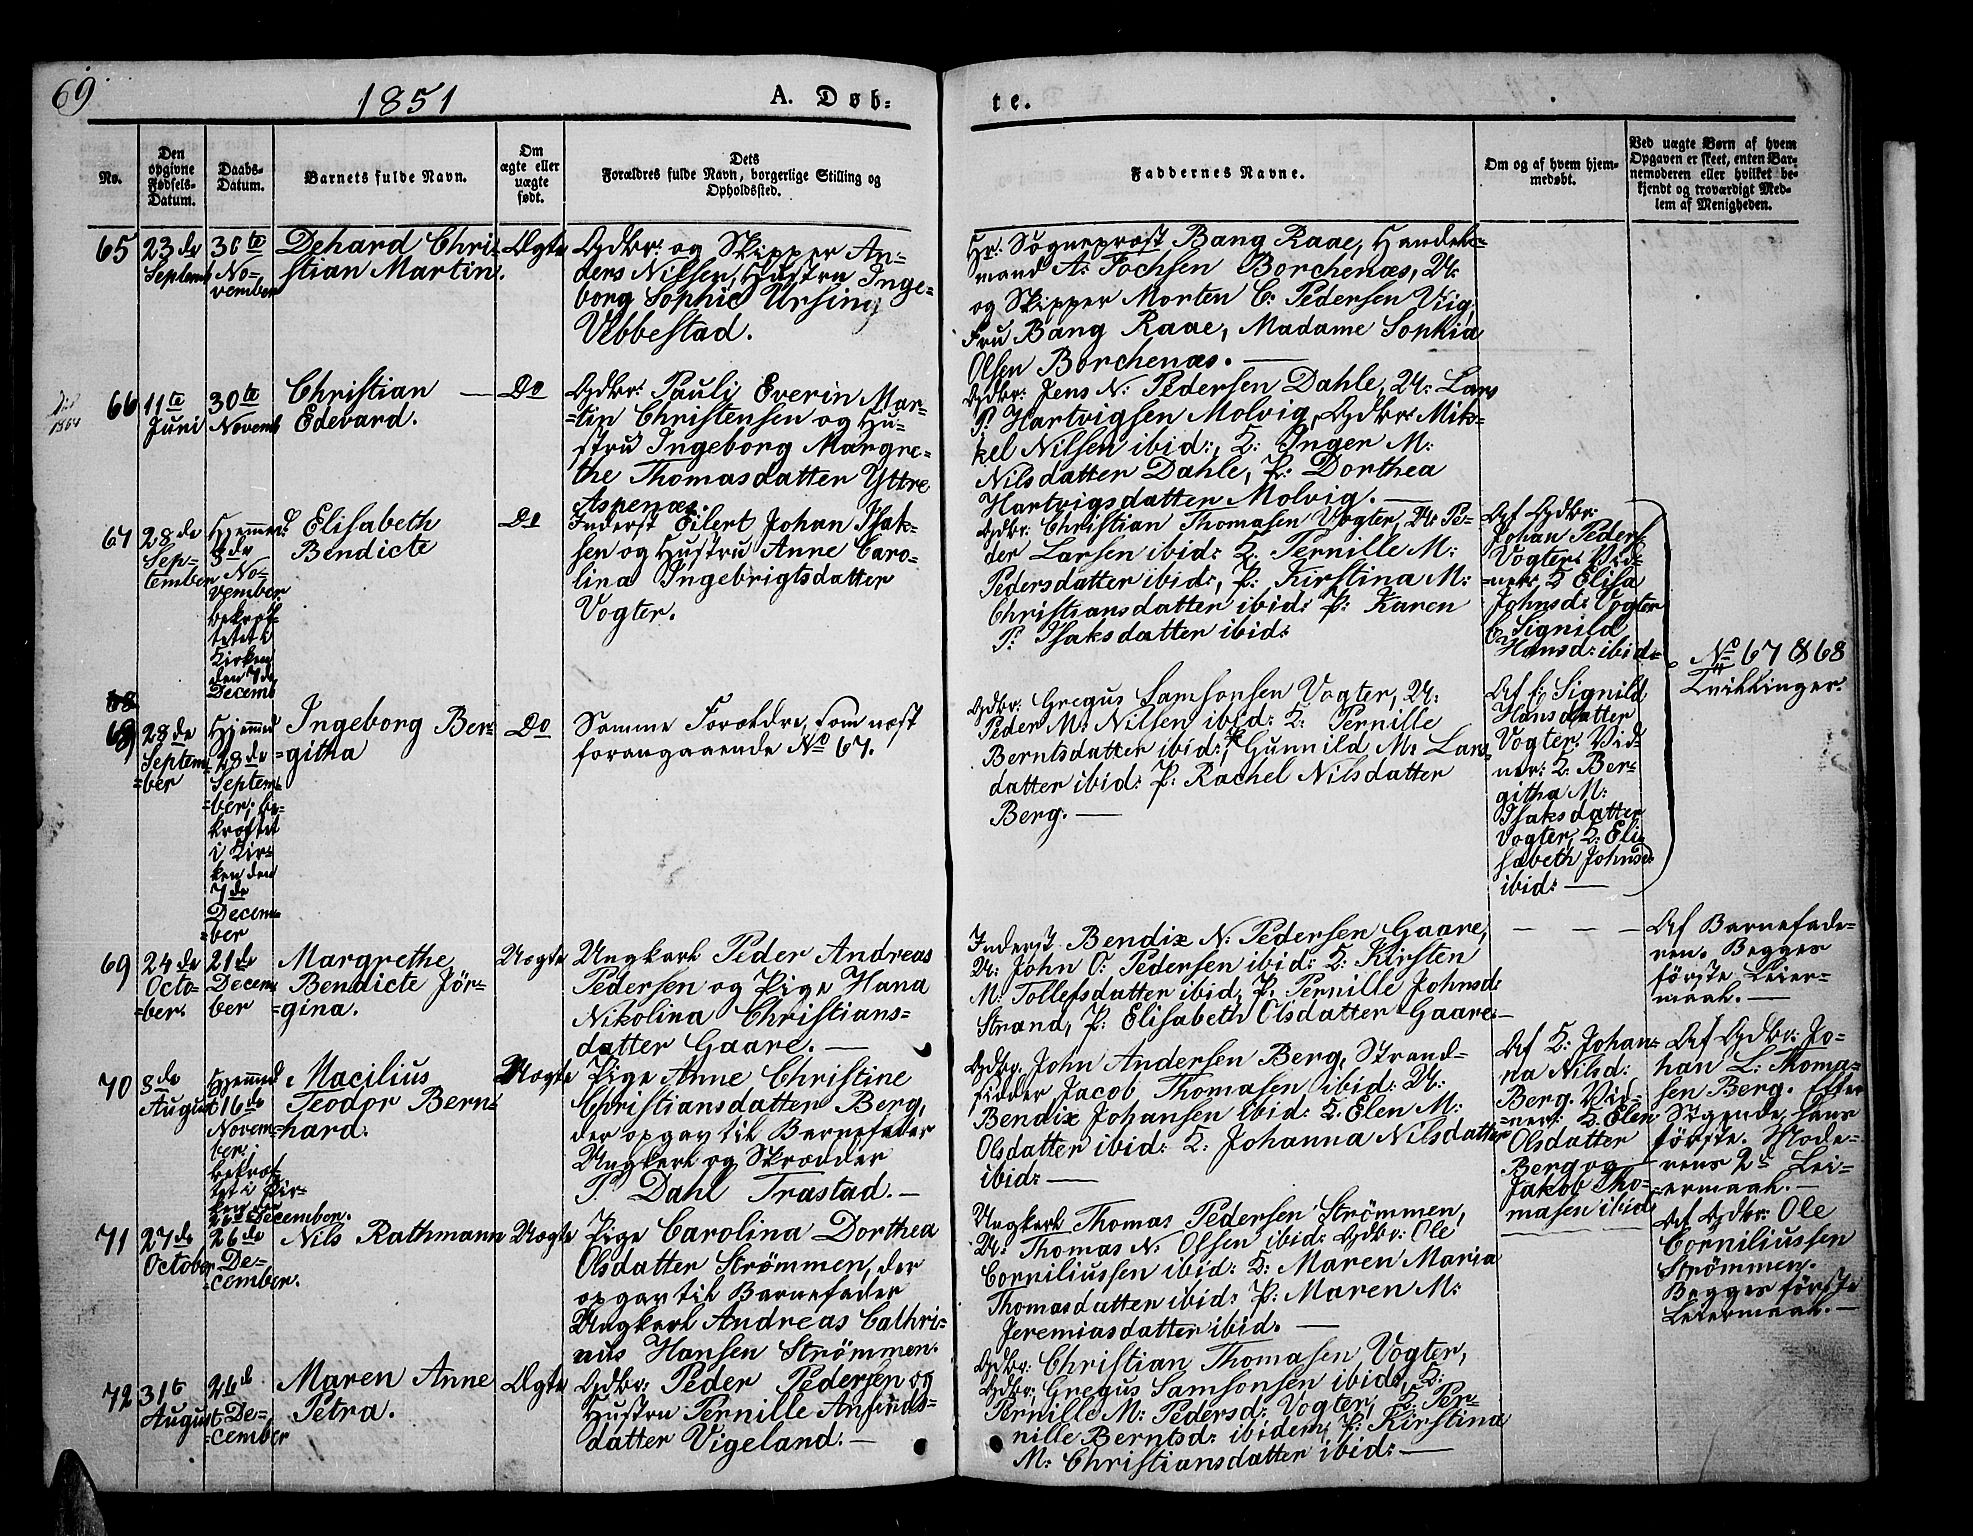 69
1851
A. Døb-
te.
No.
Den
opgivne
Fødsels-
Datum.
Daabs-
Datum.
Barnets fulde Navn.
Om
ægte eller
uægte
født.
Dets
Forældres fulde Navn, borgerlige Stilling og
Opholdssted.
Faddernes Navne.
Om og af hvem hjem-
medøbt.
Ved uægte Børn af hvem
Opgaven er skeet, enten Bar-
nemoderen eller hvilket be-
kjendt og troværdigt Med-
lem af Menigheden.
65
23de
Septemb
30te
No-
vember
Dehard Chri-
stian Martin.
Ægte
Gdbr: og Skipper An-
ders Nilsen, Hustru Inge-
borg Sophie Ursing
Vebbestad.
Hr. Sogneprest Bang Raae, Handels-
mand A: Fochsen Borchenæs, U:
og Skipper Morten C: Pedersen Viig,
Fru Bang Raae, Madame Sophia
Olsen Borchenæs. —
1864
66
11te
Juni
30te
Novemb
Christian —
Edevard.
Do
Gdbr: Pauli Everin Mar-
=tin Christensen og Hu-
stru Ingeborg Margre-
the Thomasdatter Yttre
Aspenæs.
Gdbr: Jens N: Pedersen Dahle, U: Lars
P. Hartvigsen Molvig, Gdbr: Mik-
kel Nilsen ibid:, K: Inger M:
Nilsdatter Dahle, P: Dorthea
Hartvigsdatter Molvig. —
67
28de
Sep-
tember
Hjemmed.
8de
No-
vember
bekræf-
tet i
Kirken
den 7de
Decemb
Elisabeth
Bendicte
Do
Inderst Eilert Johan Isak-
sen og Hustru Anne Caro-
lina Ingebrigtsdatter
Vogter.
Gdbr: Christian Thomasen Vogter, U: Pe-
der Larsen ibid: K. Pernille M:
Pedersdatter ibid:, P: Kirstina M:
Christiansdatter ibid: P: Karen
P: Isaksdatter ibid:
Af Gdbr:
Johan Peders:
Vogter. Vid-
=ner: K Elisa
Johnsd: Vogter
Signild
Hansd: ibid:
No 67 & 68
Tvillinger.
68
28de
Septem-
=ber
Hjemmed
28de
Septem-
=ber, be-
kræftet
i Kir-
ken den
7de
Decem-
=ber
Ingeborg Ber-
=githa
Do
Samme Forældre, som næst
forangaaende No 67.
Gdbr: Gregus Samsonsen Vogter, U:
Peder M: Nilsen ibid: K: Pernille
Berntsdatter ibid:, Gunnild M: Lars
datter ibid: P: Rachel Nilsdatter
Berg. —
Af Signild
Hansdatter
Vogter. Vid-
ner: K. Ber-
githa M:
Isaksdatter
Vogter, K: Eli-
sabeth Johnsd:
ibid: —
69
24de
Octo-
=ber.
21de
Decem
ber
Margrethe
Bendicte Jör-
=gina.
Uægte
Ungkarl Peder Andreas
Pedersen og Pige Hana
Nikolina Christians-
datter Gaare. —
Inderst Bendix N: Pedersen Gaare,
U: John O: Pedersen ibid: K: Kirsten
M: Tollefsdatter ibid, P. Pernille Johnsd:
Strand, P: Elisabeth Olsdatter Gaare. —
— — —
Af Barnefade-
ren. Begges
förste Leier-
maal. —
70
8de
August
Hjemmed
16de
Novem-
ber,
bekræf-
tet i Kir-
ken den
26de December.
Macilius
Teodor Bern-
hard.
Uægte
Pige Anne Christine
Christiansdatter Berg,
der opgav til Barnefader
Ungkarl og Skrædder
P. Dahl Trastad. —
Gdbr: John Andersen Berg, Strand-
sidder Jacob Thomasen ibid: U:
Bendix Johansen ibid: K. Elen M:
Olsdatter ibid: K: Johanna Nilsdatter
ibid: —
Af K: Johan-
na Nilsd:
Berg. Vid-
=ner: K. Elen
Olsdatter
Berg og
Jakob Tho-
masen ibid
Af Gdbr: Jo-
han L: Thoma-
sen Berg. Efter
Sigende hans
förste. Mode-
rens 2de Lei-
=ermaal. —
71
27de
October
26de
De-
=cember.
Nils Rathmann
Uægte
Pige Carolina Dorthea
Olsdatter Strömmen, der
opgav til Barnefader
Ungkarl Andreas Cathri-
nus Hansen Strömmen.
Ungkarl Thomas Pedersen Strömmen,
U: Thomas N: Olsen ibid: Gdbr: Ole
Corniliussen ibid: K: Maren Maria
Thomasdatter ibid: P: Maren M:
Jeremiasdatter ibid. —
Af Gdbr: Ole
Corniliussen
Strömmen.
Begges förste
Leiermaal. —
72
31te
August
26de
De-
=cember
Maren Anne
Petra.
Ægte
Gdbr: Peder Pedersen og
Hustru Pernille Anfinds-
datter Vigeland. —
Gdbr: Christian Thomasen Vogter,
Gdbr: Gregus Samsonsen ibid:, K:
Pernille M: Pedersd: Vogter, K: Per-
nille Berntsd: ibidem, P: Kirstina
M: Christiansdatter ibid: —